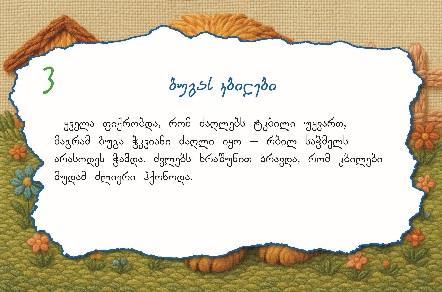 3
ბუგას კბილები
ყველა ფიქრობდა, რომ ძაღლებს ტკბილი უყვართ,
მაგრამ ბუგა ჭკვიანი ძაღლი იყო — რბილ საჭმელს
არასოდეს ჭამდა. ძვლებს ხრაშუნით ღრავდა, რომ კბილები
მუდამ ძლიერი ჰქონოდა.